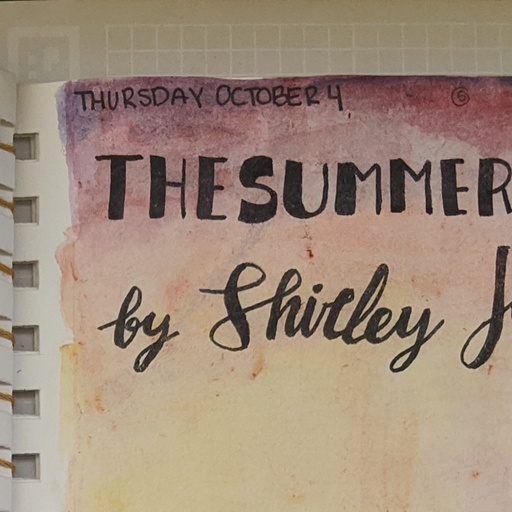 THURSDAY OCTOBER 4
THE SUMMER
by Shirley J